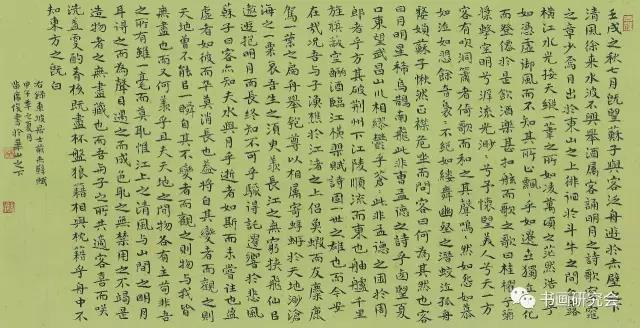 壬戌之秋七月既望蘇子與客泛舟遊於赤壁之下
清風徐來水波不興舉酒屬客誦明月之詩歌窈窕
之章少焉月出於東山之上徘徊於斗牛之間白露
橫江水光接天縱一葦之所如凌萬頃之茫然浩浩乎
如憑虛御風而不知其所止飄飄乎如遺世獨立羽化
而登僊於是飲酒樂甚扣舷而歌之歌曰桂櫂兮蘭
槳擊空明兮泝流光渺渺兮予懷望美人兮天一方
客有吹洞簫者倚歌而和之其聲嗚嗚然如怨如慕
如泣如愬餘音裊裊不絕如縷舞幽壑之潛蛟泣孤舟之
嫠婦蘇子愀然正襟危坐而問客曰何為其然也客
曰月明星稀烏鵲南飛此非曹孟德之詩乎西望夏
口東望武昌山川相繆鬱乎蒼蒼此非孟德之困於周
郎者乎方其破荊州下江陵順流而東也舳艫千里
旌旗蔽空釃酒臨江橫槊賦詩固一世之雄也而今安
在哉況吾與子漁樵於江渚之上侶魚蝦而友麋鹿
駕一葉之扁舟舉匏尊以相屬寄蜉蝣於天地渺滄
海之一粟哀吾生之須臾羨長江之無窮挾飛仙以
遨遊抱明月而長終知不可乎驟得託遺響於悲風
蘇子曰客亦知夫水與月乎逝者如斯而未嘗往也盈
虛者如彼而卒莫消長也蓋將自其變者而觀之則
天地曾不能以一瞬自其不變者而觀之則物與我皆
無盡也而又何羨乎且夫天地之間物各有主苟非吾
之所有雖一毫而莫取惟江上之清風與山間之明月
耳得之而為聲目遇之而成色取之無禁用之不竭是
造物者之無盡藏也而吾與子之所共適客喜而笑
洗盞更酌肴核既盡杯盤狼籍相與枕籍乎舟中不
知東方之既白
右錄東坡居士前赤壁賦
书画研究会